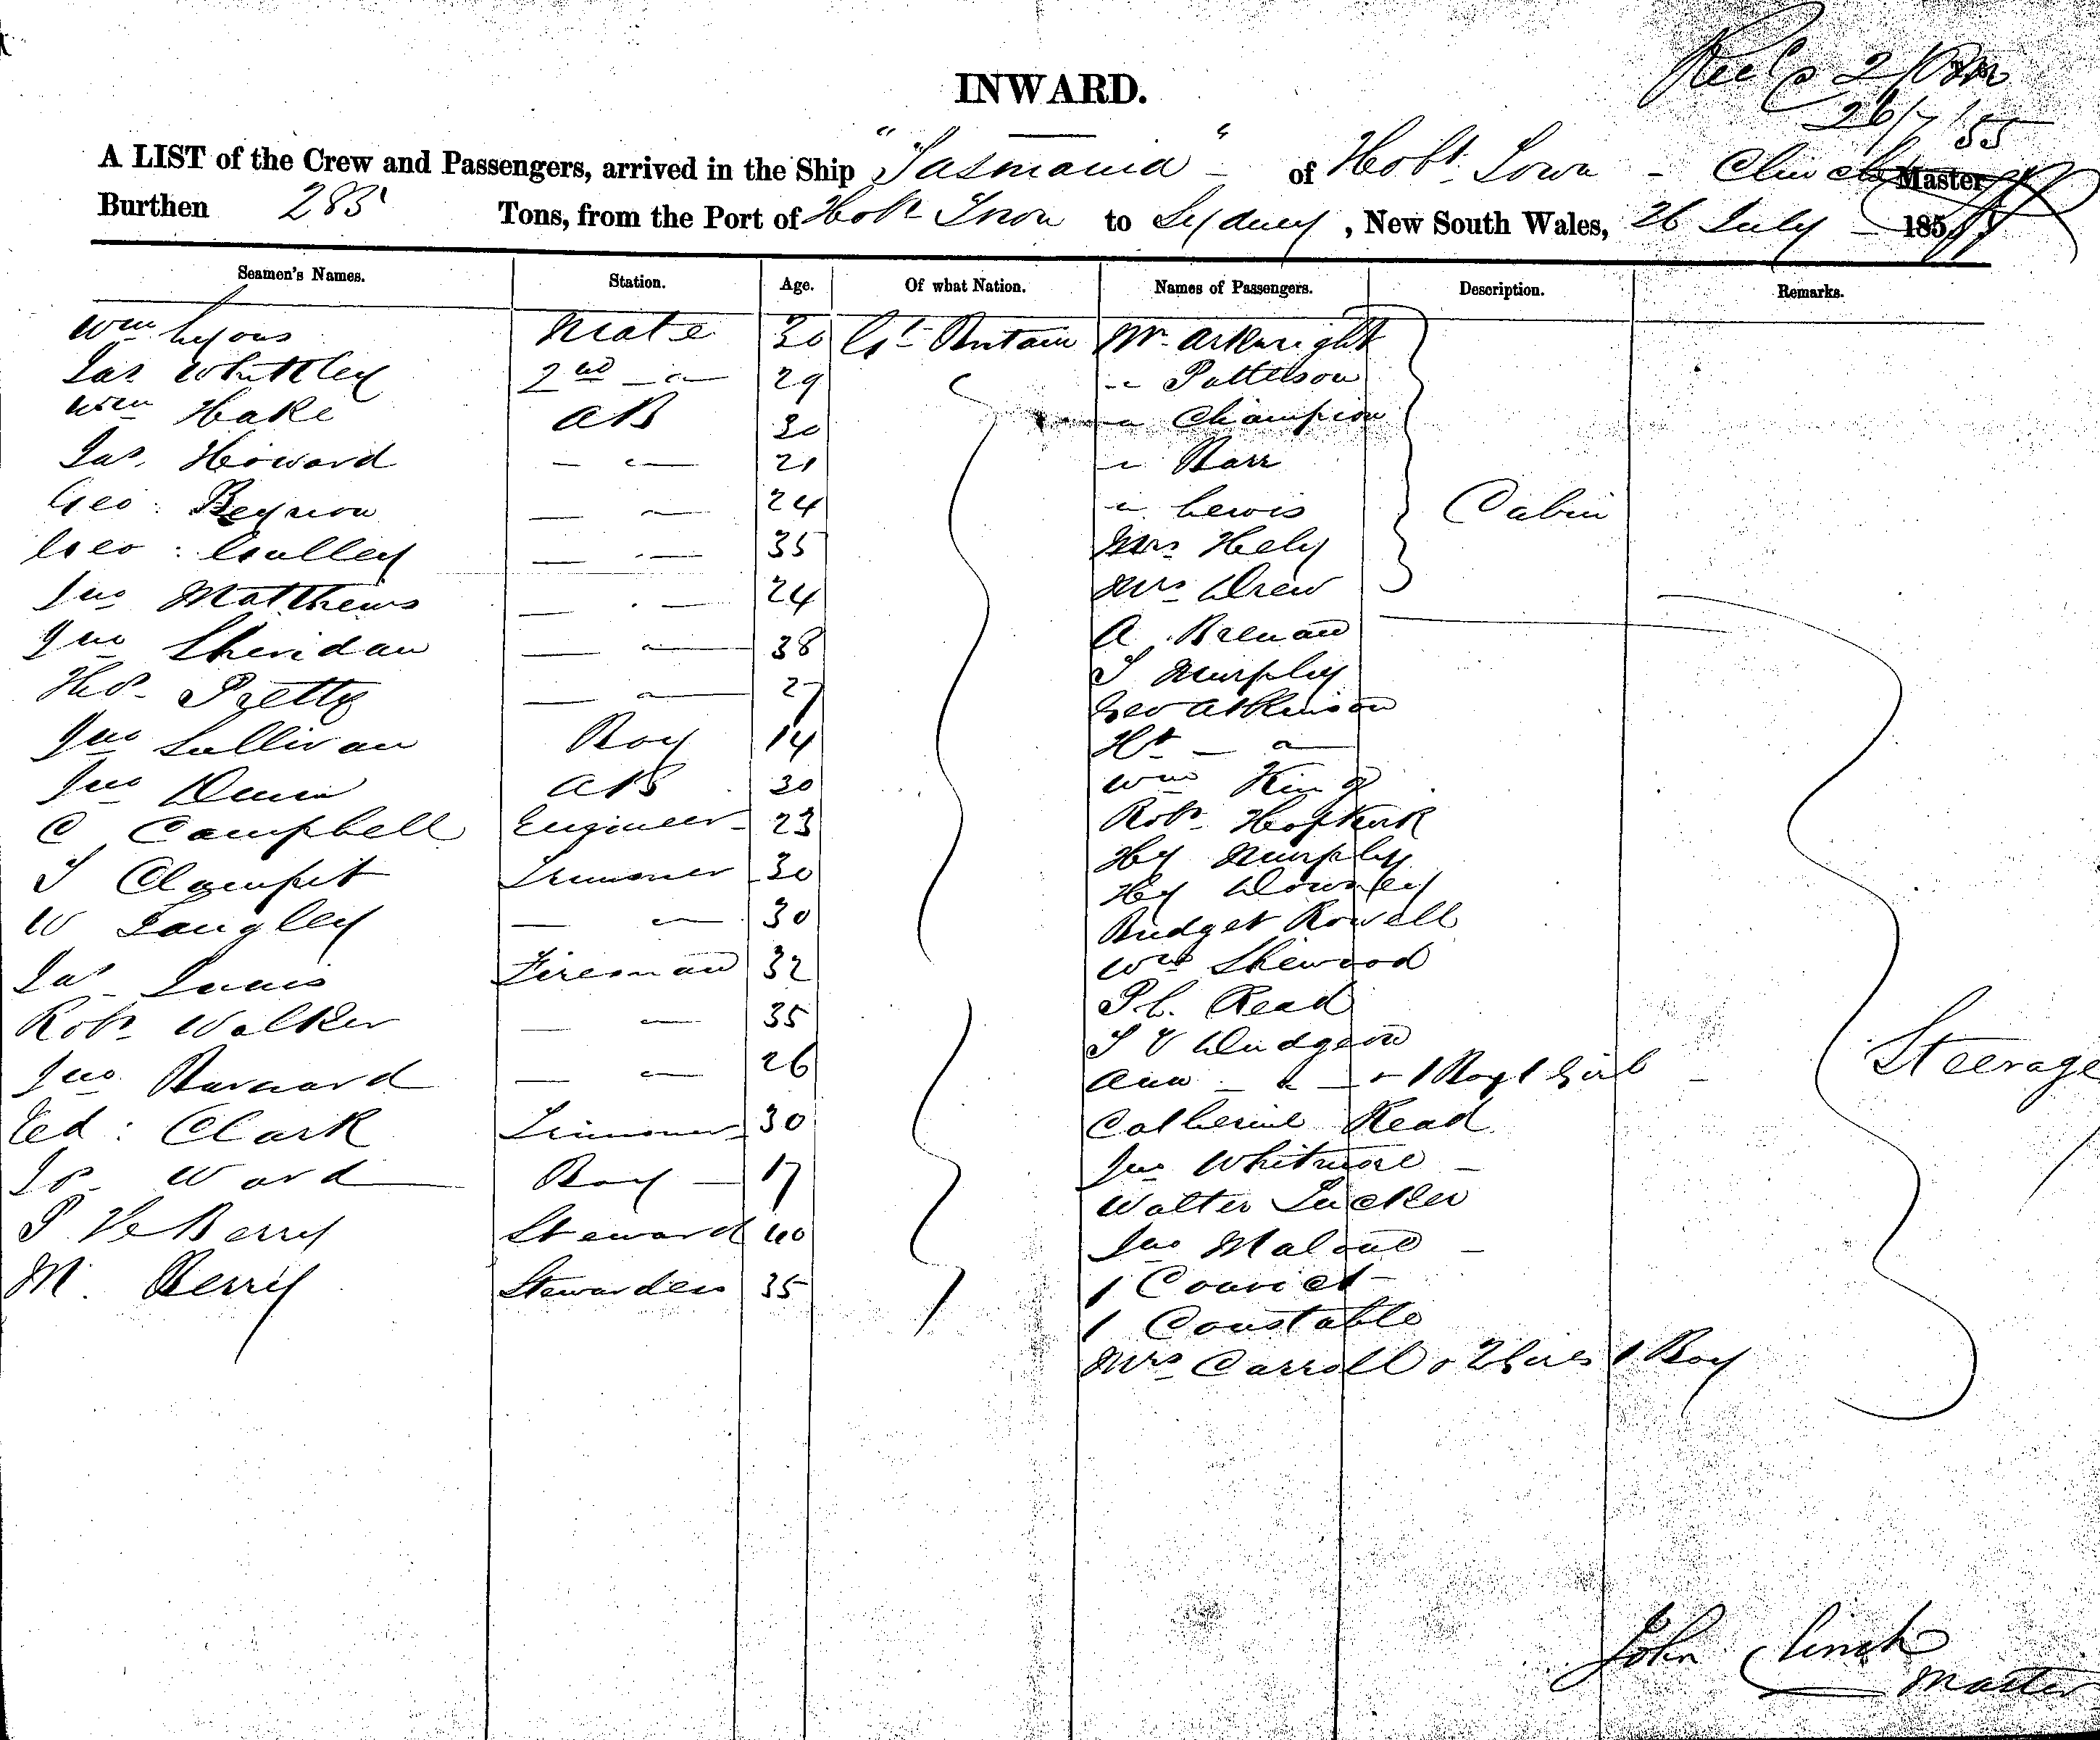 Recd 2 PM
26/7/55
INWARD.
A LIST of the Crew and Passengers, arrived in the Ship "Tasmania" of Hobt. Town - Clinch Master,
Burthen 285 Tons, from the Port of Hobt Town to Sydney, New South Wales, 26 July 1855
Seamen's Names. Station. Age. Of what Nation. Names of Passengers. Description. Remarks.
Wm Lyons Mate 30 Gt. Britain Mr. Arkwright
Jas. Whittley 2nd — " — 29 " Patterson
Wm Hake AB 30 " Champion
Jas. Howard — " — 21 " Barr
Geo: Beynon — " — 24 " Lewis Cabin
Geo: Gulley — " — 35 Mrs Hely
Jno Matthews — " — 24 Mrs Drew
Jno Sheridan — " — 38 A. Brenan
Thos. Pretty — " — 27 J Murphy
Jno Sullivan Boy 14 Geo Atkinson
Jno Dunn AB 30 Ht — " —
C Campbell Engineer 23 Wm King
J Clampit Trimmer 30 Robt. Hopkirk
W Langley — " — 30 Hy Murphy
Jas. Innis Fireman 32 Hy Downey
Robt. Walker — " — 35 Bridget Rowell
Jno. Barnard — " — 26 Wm Sherwood
Ed: Clark Trimmer 30 P.L. Read
Js. Ward Boy 17 J V Dudgeon
P. Berry Steward 40 Ann — " — + 1 Boy 1 Girl Steerage
M. Berry Stewardess 35 Catherine Read
Jno Whitmore
Walter Tucker
Jno Malone
1 Convict
1 Constable
Mrs Carroll & 2 Girls 1 Boy
John Clinch
Master